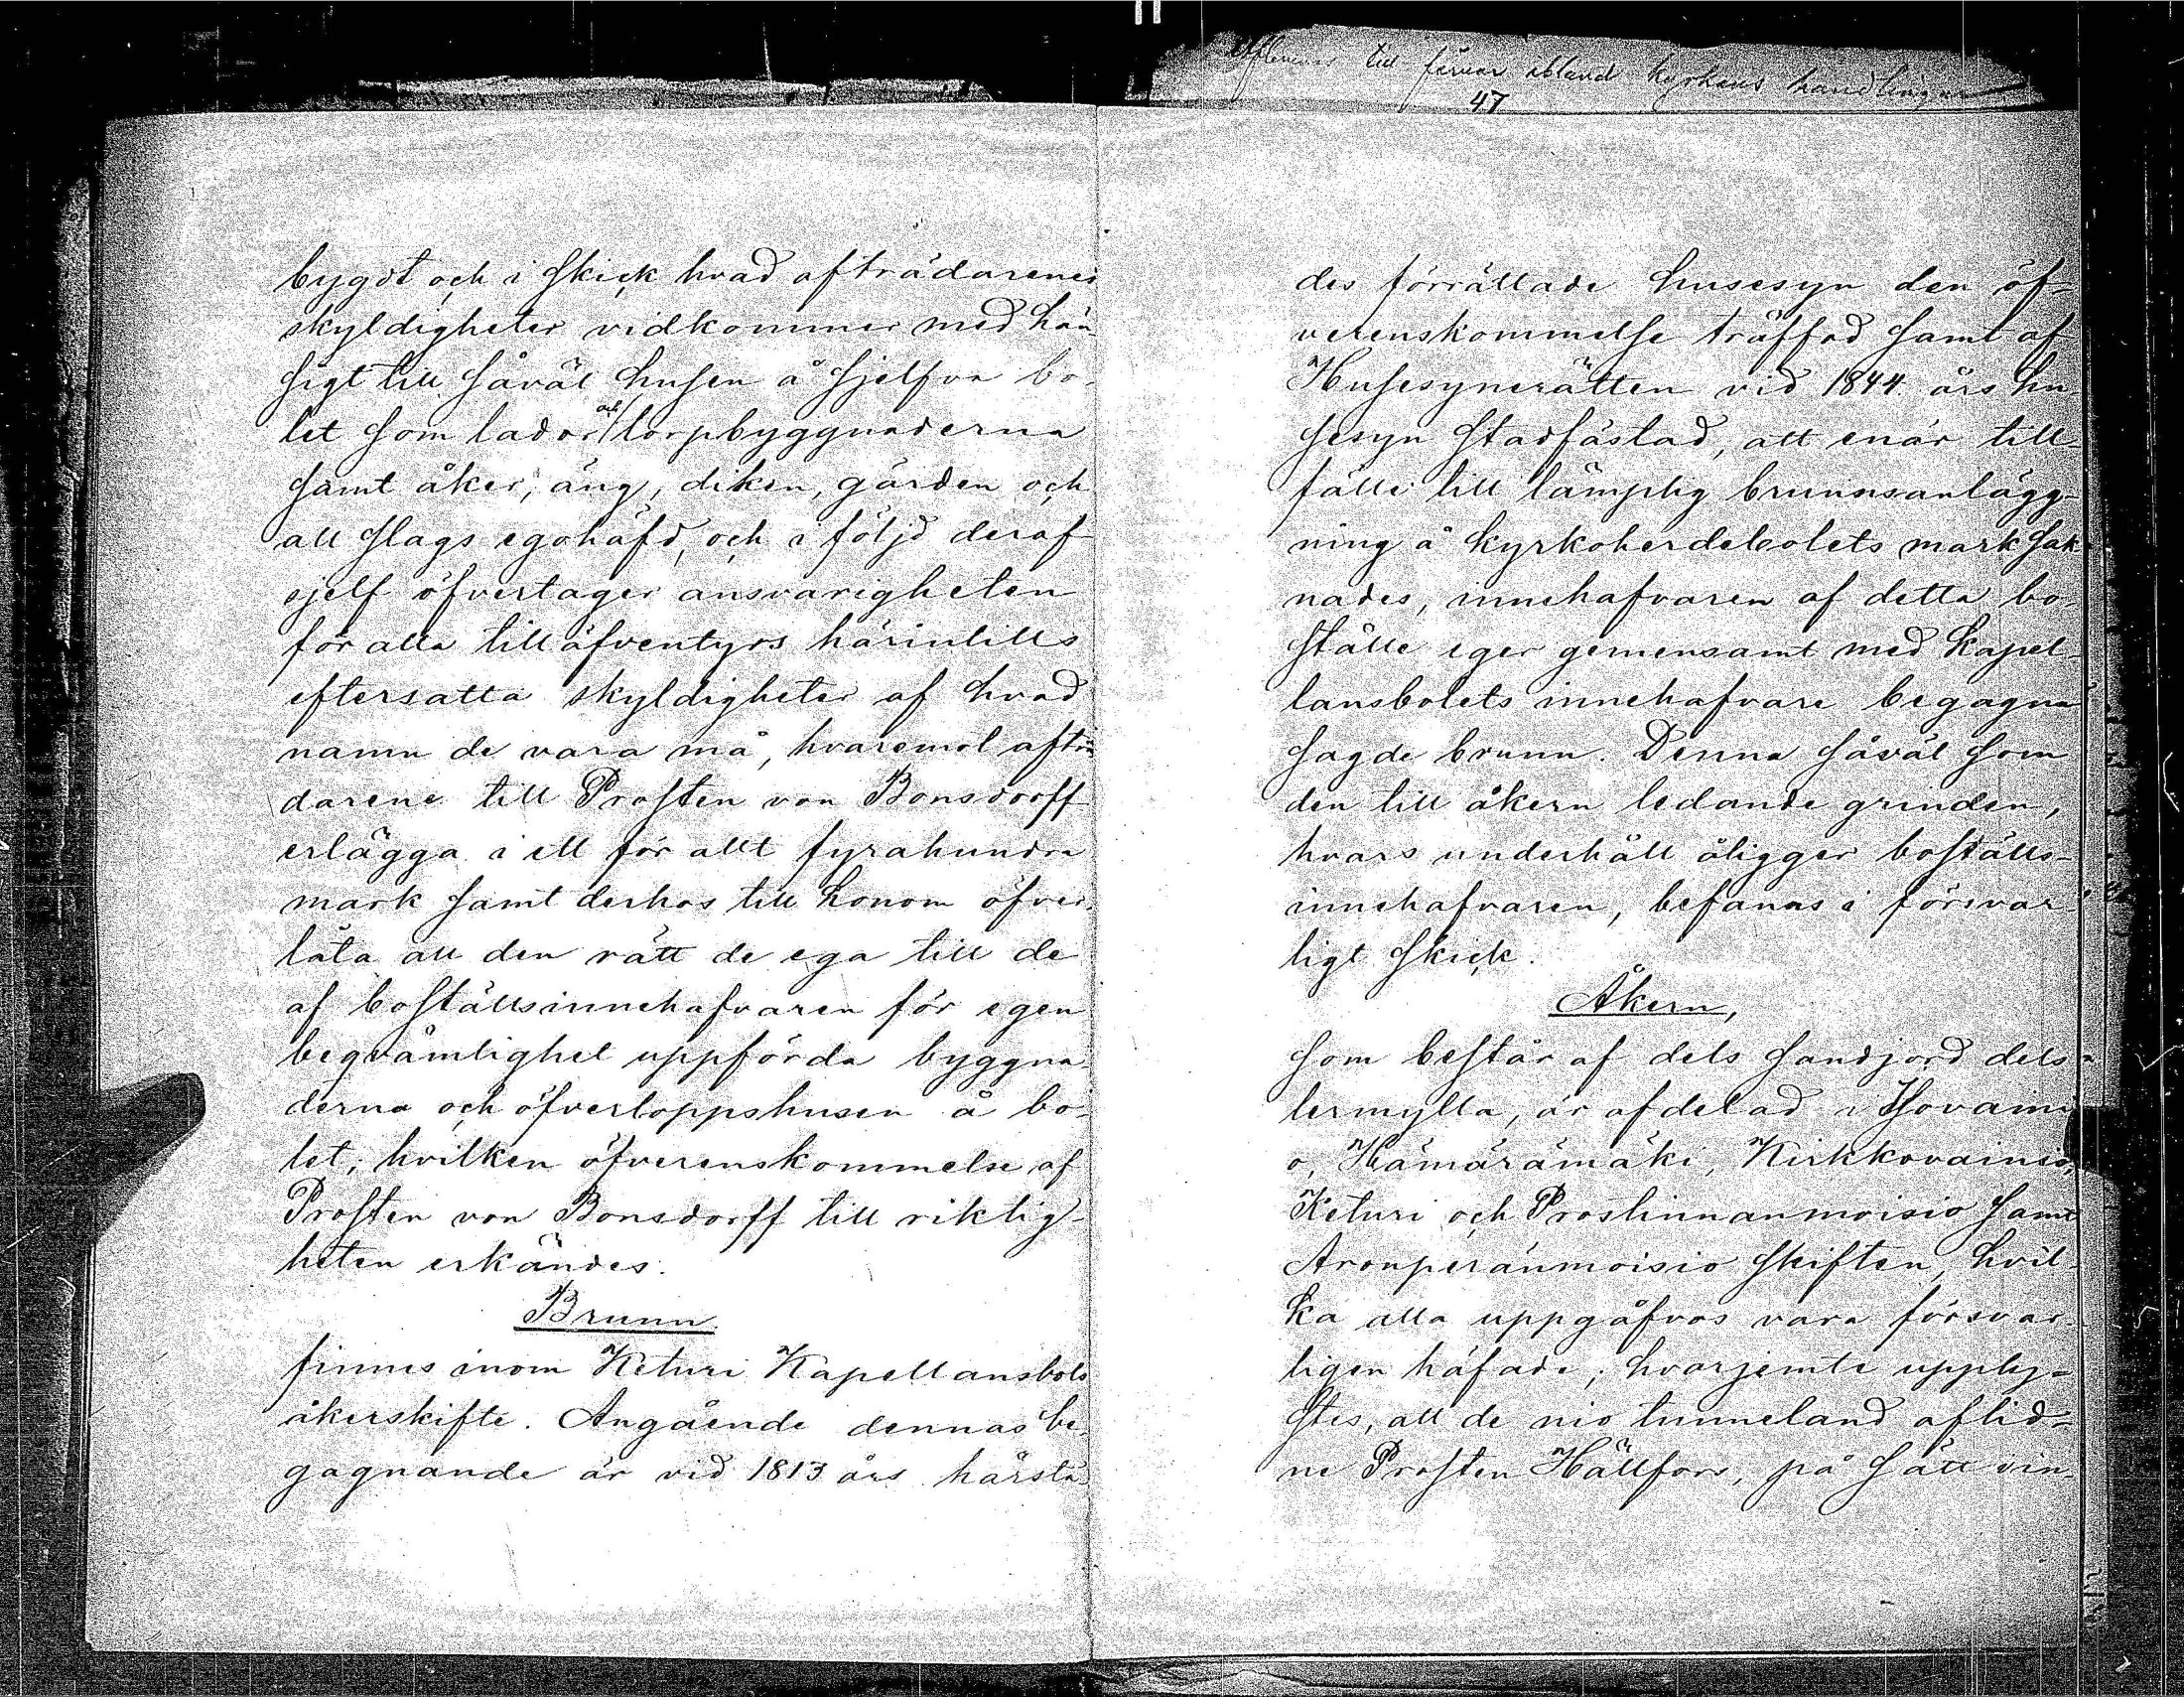 till förvar ibland kyrkans handlingar
47
bygdt och i skick hvad afträdarenes
skyldigheter vidkommer med hän
sigt till såväl husen å sjelfva bo-
let som lador och torpbyggnaderna
samt åker, äng, diken, gärden och
all slags egohäfd, och i följd deraf
sjelf öfvertager ansvarigheten
för alla till äfventyrs härintills
eftersatta skyldigheter af hvad
namn de vara må, hvaremot afträ
darene till Prosten von Bonsdorff
erlägga i ett för allt fyrahundra
mark samt derhos till honom öfver-
låta all den rätt de ega till de
af boställsinnehafvaren för egen
beqvämlighet uppförda byggna-
derna och öfverloppshusen å bo-
let; hvilken öfverenskommelse af
Prosten von Bonsdorff till riktig-
heten erkändes.
Brunn.
finnes inom Keturi Kapellansbols
åkerskifte. Angående dennas be-
gagnande är vid 1813 års härstä-
des förrättade husesyn den öf-
verenskommelse träffad samt af
Husesynerätten vid 1844 års hu-
sesyn stadfästad, att enär till-
fälle till lämplig brunnsanlägg-
ning å kyrkoherdebolets mark sak
nades, innehafvaren af detta bo-
ställe eger gemensamt med kapel-
lansbolets innehafvare begagna
sagde brunn. Denna såväl som
den till åkern ledande grinden,
hvars underhåll åligger boställs-
innehafvaren, befanns i försvar-
ligt skick.
Åkern,
som består af dels sandjord dels
lermylla, är afdelad i Hovaini
o, Hämärämäki, Kirkkovainio,
Keturi och Prostinnanmoisio samt
Aronperänmoisio skiften, hvil-
ka alla uppgåfvos vara försvar-
ligen häfade; hvarjemte upply-
stes, att de nio tunneland aflid-
ne Prosten Hällfors, på sätt vin-